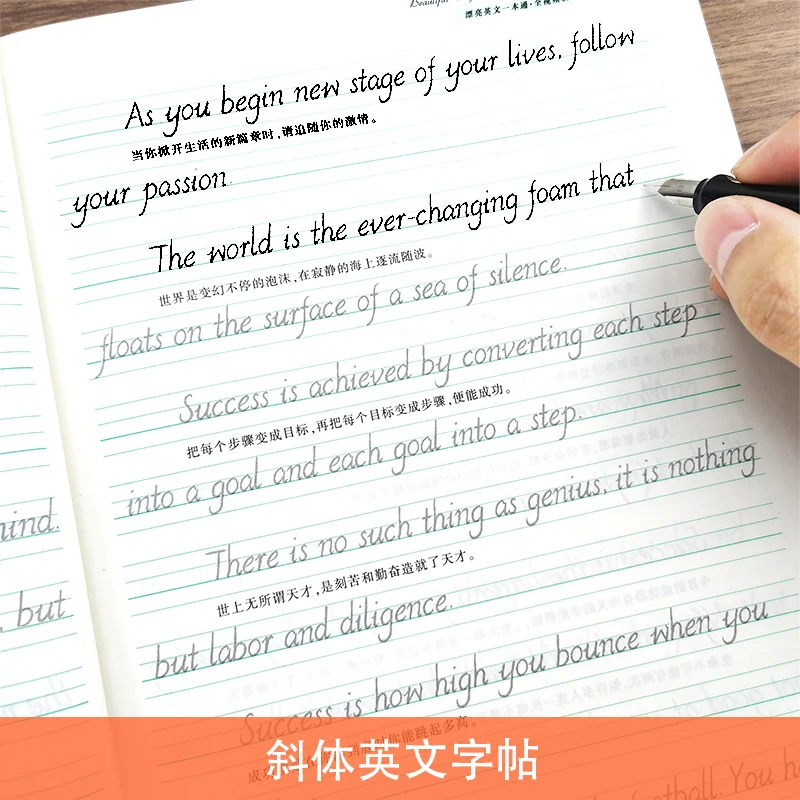 Beautiful
漂亮英文一本通·全视频
As you begin new stage of your lives, follow
当你掀开生活的新篇章时,请追随你的激情。
your passion.
The world is the ever-changing foam that
世界是变幻不停的泡沫,在寂静的海上逐流随波。
floats on the surface of a sea of silence.
Success is achieved by converting each step
把每个步骤变成目标,再把每个目标变成步骤,便能成功。
into a goal and each goal into a step.
There is no such thing as genius, it is nothing
世上无所谓天才,是刻苦和勤奋造就了天才。
but labor and diligence.
Success is how high you bounce when you
成功 你能跳起多高。
football. You
mind.
, but
斜体英文字帖